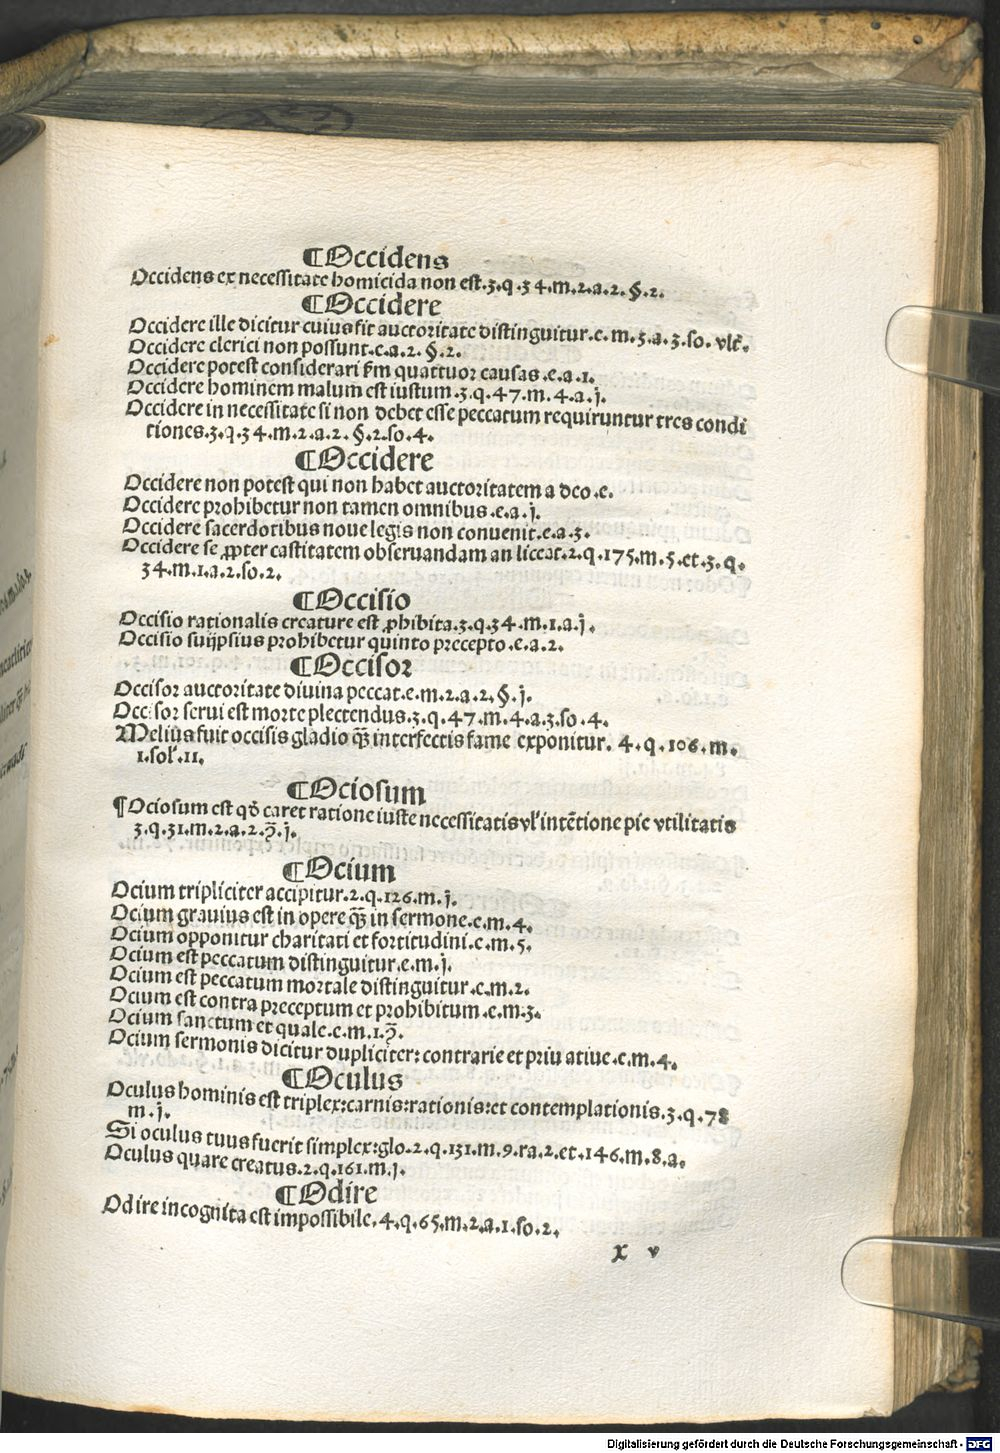 ¶Occidens
Occidens ex necessitate homicida non est.3.q.34.m.2.a.2.§.2.
¶Occidere
Occidere ille dicitur cuius fit auctoritate distinguitur.e.m.3.a.3.so. vlt̃.
Occidere clerici non possunt.e.a.2.§.2.
Occidere potest considerari s̃m quattuor causas.e.a.1.
Occidere hominem malum est iustum.3.q.47.m.4.a.j.
Occidere in necessitate si non debet esse peccatum requiruntur tres condi
tiones.3.q.34.m.2.a.2.§.2.so.4.
¶Occidere
Occidere non potest qui non habet auctoritatem a deo.e.
Occidere prohibetur non tamen omnibus.e.a.j.
Occidere sacerdotibus noue legis non conuenit.e.a.3.
Occidere se ꝓpter castitatem obseruandam an liceat.2.q.175.m.5.et.3.q.
34.m.1.a.2.so.2.
¶Occisio
Occisio rationalis creature est ꝓhibita.3.q.34.m.1.a.j.
Occisio suijpsius prohibetur quinto precepto.e.a.2.
¶Occisor
Occisor auctoritate diuina peccat.e.m.2.a.2.§.j.
Occisor serui est morte plectendus.3.q.47.m.4.a.3.so.4.
Melius fuit occisis gladio q̃ȝ interfectis fame exponitur. 4.q.106.m.
1.sol̃.11.
¶Ociosum
¶Ociosum est qđ caret ratione iuste necessitatis vl̃ intẽtione pie vtilitatis
3.q.31.m.2.a.2.ꝑ̃.j.
¶Ocium
Ocium tripliciter accipitur.2.q.126.m.j.
Ocium grauius est in opere q̃ȝ in sermone.e.m.4.
Ocium opponitur charitati et fortitudini.e.m.5.
Ocium est peccatum distinguitur.e.m.j.
Ocium est peccatum mortale distinguitur.e.m.2.
Ocium est contra preceptum et prohibitum.e.m.3.
Ocium sanctum et quale.e.m.1.ꝑ̃.
Ocium sermonis dicitur dupliciter: contrarie et priuatiue.e.m.4.
¶Oculus
Oculus hominis est triplex:carnis:rationis:et contemplationis.3.q.78
m.j.
Si oculus tuus fuerit simplex:glo.2.q.131.m.9.ra.2.et.146.m.8.a.
Oculus quare creatus.2.q.161.m.j.
¶Odire
Odire incognita est impossibile.4.q.65.m.2.a.1.so.2.
x v
Digitalisierung gefördert durch die Deutsche Forschungsgemeinschaft - DFG